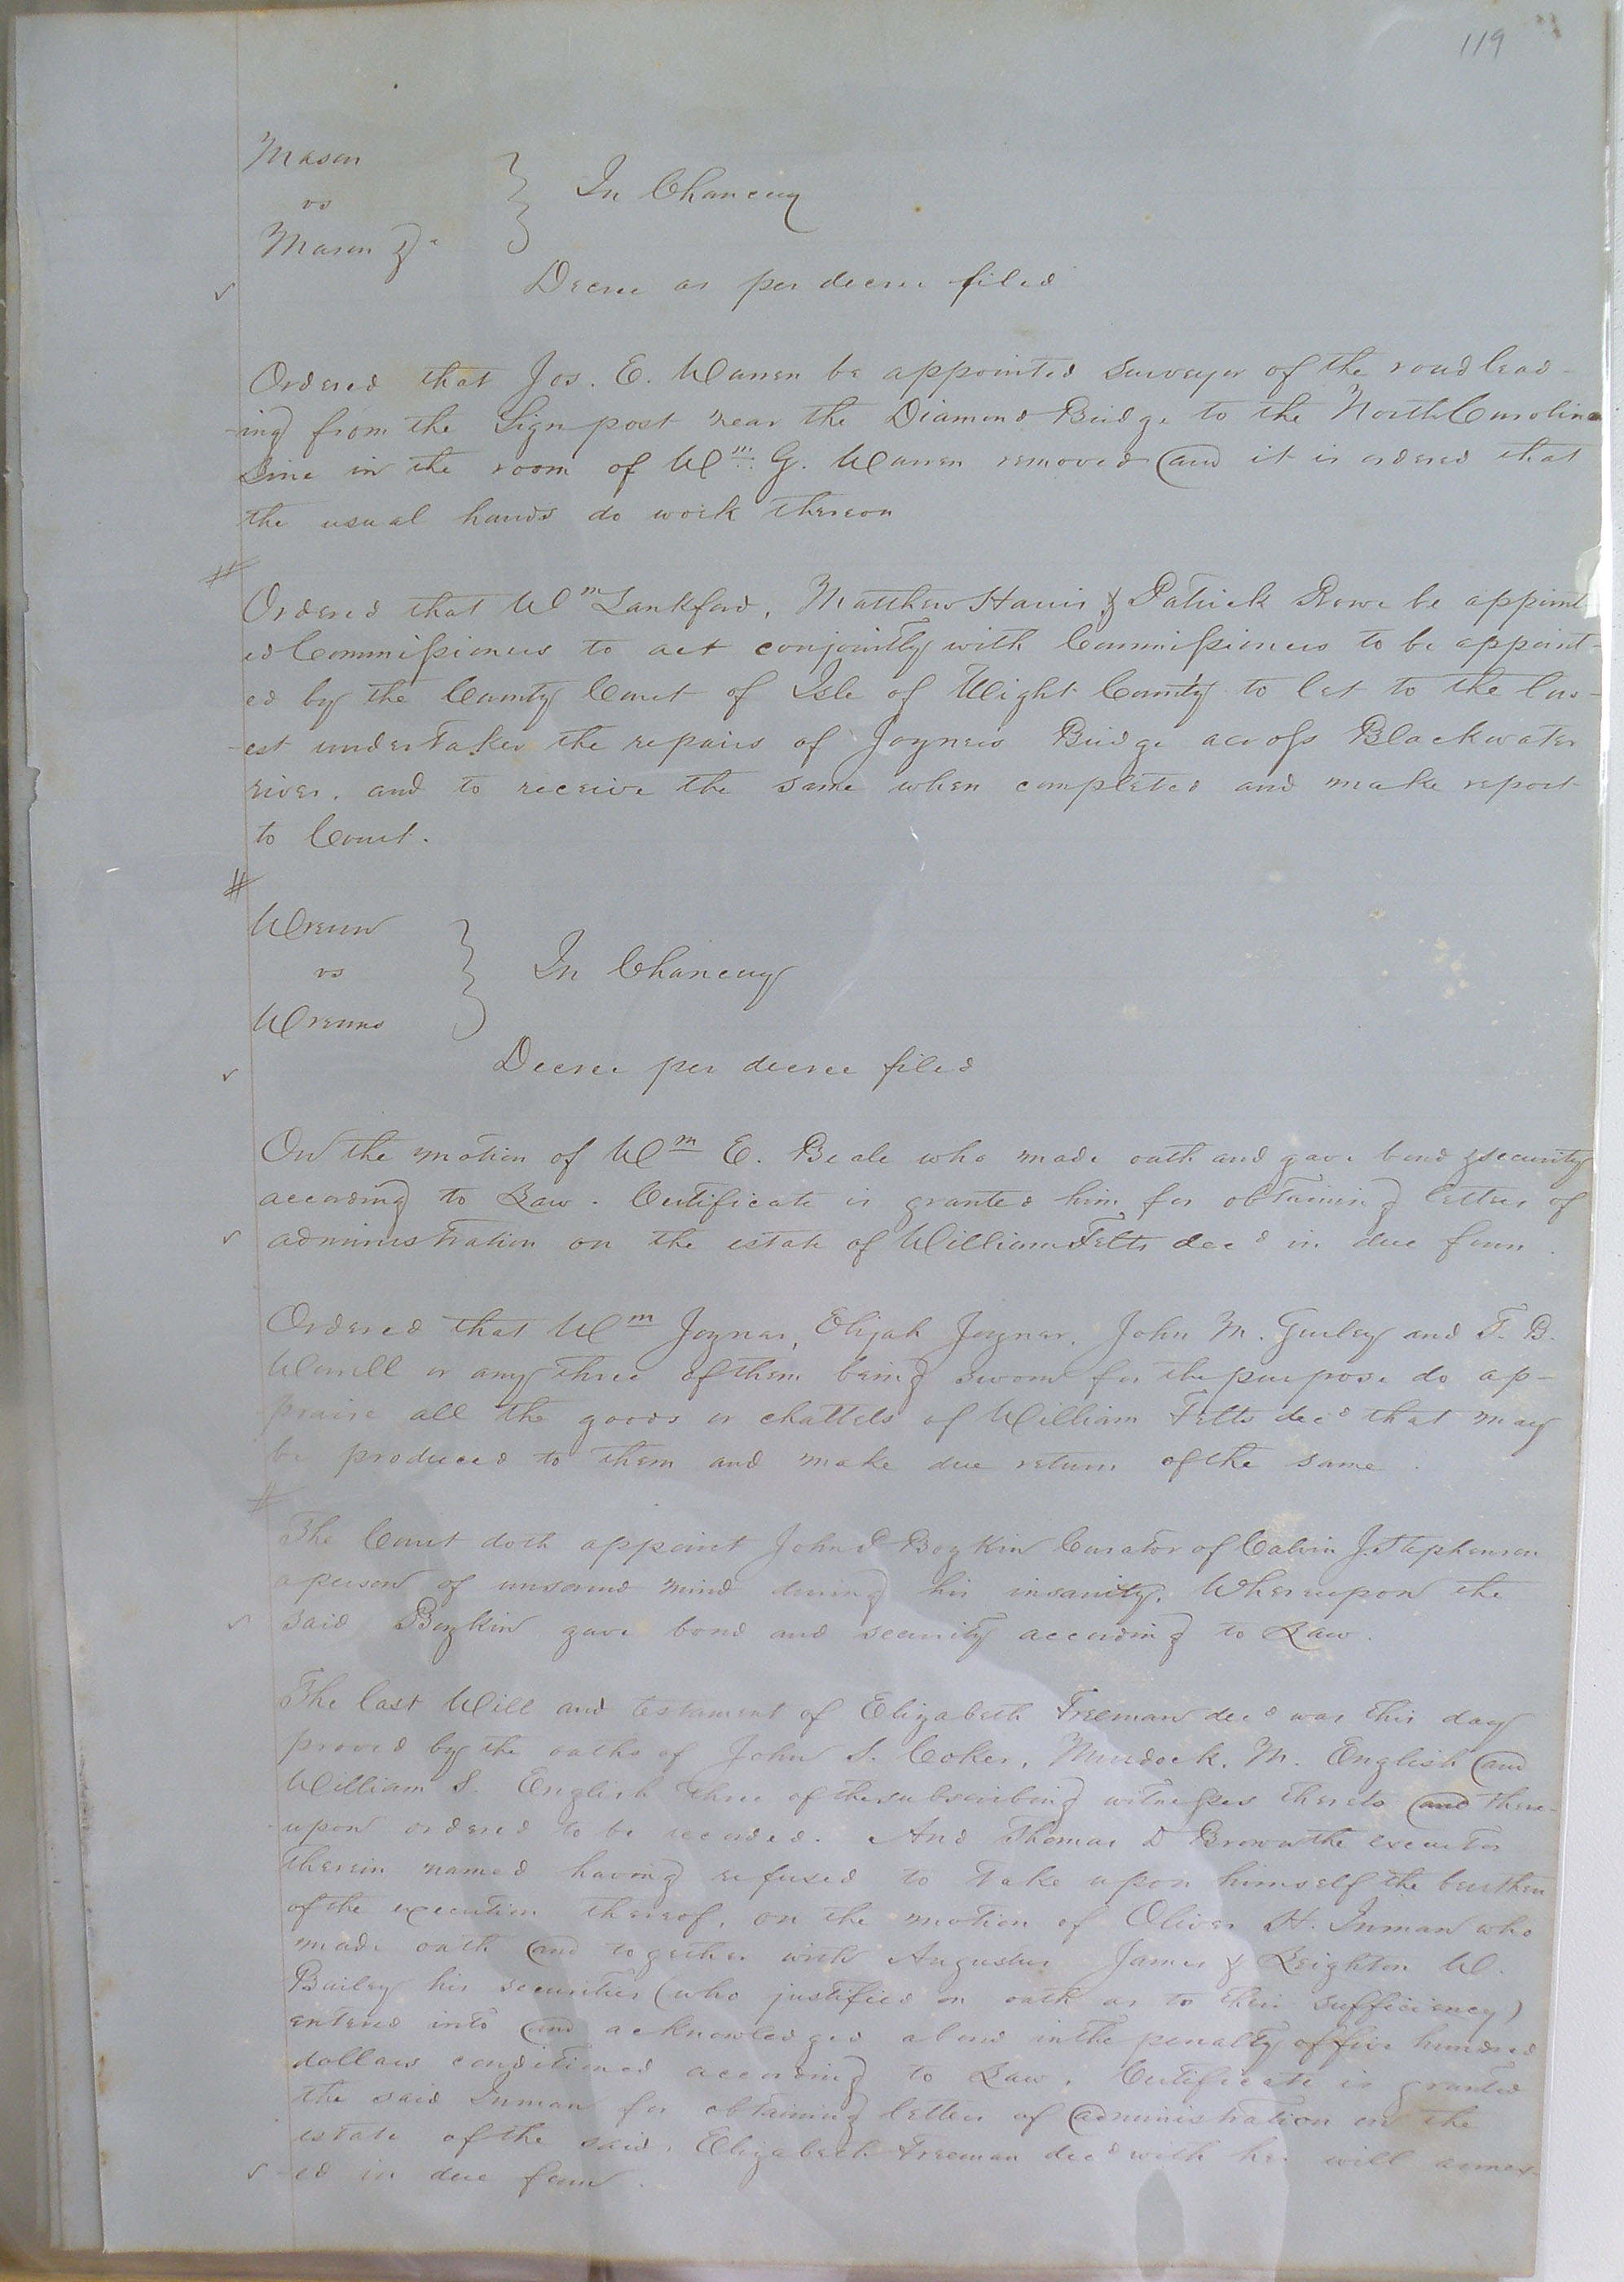 119
Mason
vs
Mason &c
} In Chancery
✓ Decree as per decree filed
Ordered that Jos. E. Warren be appointed Surveyor of the road lead-
-ing from the Sign post near the Diamond Bridge to the North Carolina
Line in the room of Wm. G. Warren removed and it is ordered that
the usual hands do work thereon
#
Ordered that Wm Lankford, Matthew Harris & Patrick Rowe be appoint
ed Commissioners to act conjointly with Commissioners to be appoint-
ed by the County Court of Isle of Wight County to let to the low-
-est undertaker the repairs of Joyners Bridge across Blackwater
river. and to receive the same when completed and make report
to Court.
#
Wrenn
vs
Wrenns
} In Chancery
✓ Decree per decree filed
On the motion of Wm E. Beale who made oath and gave bond & security
according to Law. Certificate is granted him for obtaining letters of
✓ administration on the estate of William Felts decd in due form.
Ordered that Wm Joyner, Elijah Joyner, John M. Gurley and T. B.
Worrell or any three of them being sworn for the purpose do ap-
praise all the goods or chattels of William Felts decd that may
be produced to them and make due return of the same.
#
The Court doth appoint John D Boykin Curator of Calvin J. Stephenson
a person of unsound mind during his insanity. Whereupon the
✓ said Boykin gave bond and security according to Law.
The last Will and testament of Elizabeth Freeman decd was this day
proved by the oaths of John S. Coker, Murdock. M. English and
William S. English three of the subscribing witnesses thereto and there-
-upon ordered to be recorded. And Thomas D Brown the executor
therein named having refused to take upon himself the burthen
of the execution thereof, on the motion of Oliver H. Inman who
made oath and together with Augustus James & Leighton W.
Bailey his securities (who justified on oath as to their sufficiency)
entered into and acknowledged a bond in the penalty of five hundred
dollars conditioned according to Law. Certificate is granted
the said Inman for obtaining letters of administration on the
estate of the said, Elizabeth Freeman decd with her will annex-
✓ -ed in due form.